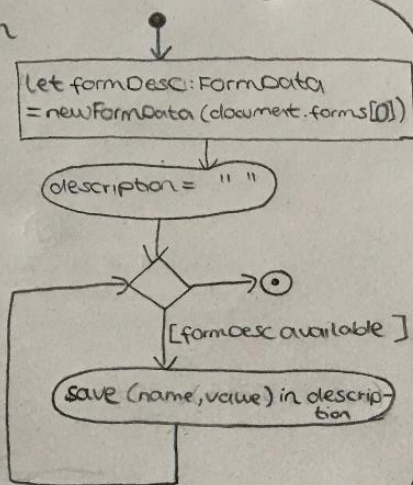 n
let formDesc:FormData
=newFormData(document.forms[0])
description= " "
[formDesc available]
save (name,value) in descrip-
tion